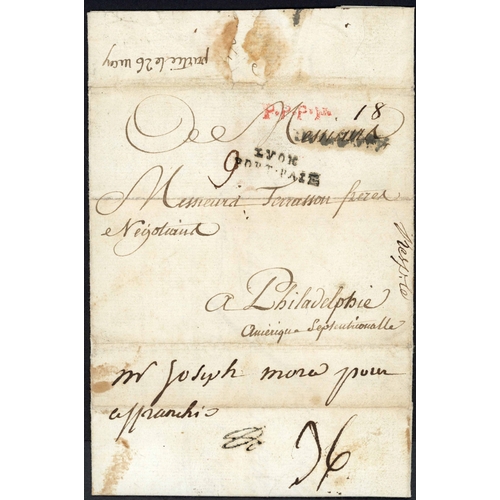 partie le 26 may
P.P.P.P.
18
De
9
LYON
PORT·PAIE
Messieurs Terrasson freres
Négotiants
a Philadelphie
Amérique Septentrionalle
mr Joseph mora pour
affranchir
36